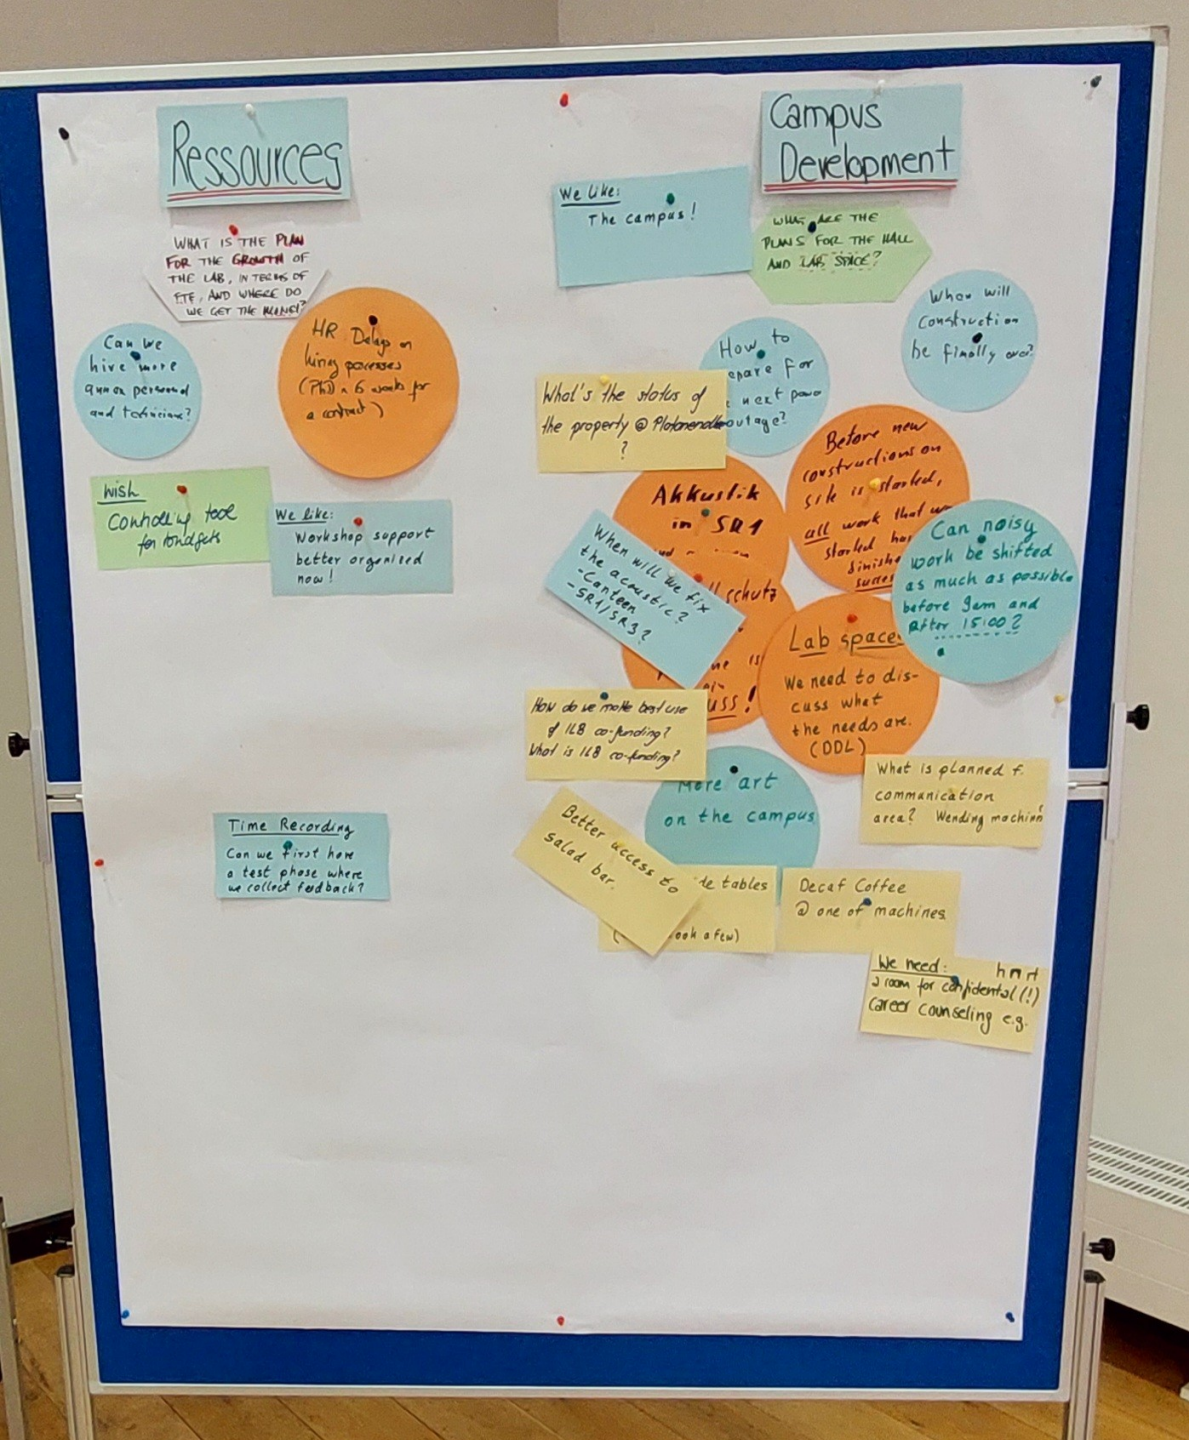 Ressources
WHAT IS THE PLAN
FOR THE GROWTH OF
THE LAB, IN TERMS OF
FTE, AND WHERE DO
WE GET THE MONEY?
Can we
hire more
personal
and technicians?
HR Delays on
hiring processes
(PhD ~ 6 weeks for
a contract)
Wish
Controlling tool
for budgets
We like:
Workshop support
better organised
now!
Time Recording
Can we first have
a test phase where
we collect feedback?
Campus
Development
We Like:
The campus!
WHAT ARE THE
PLANS FOR THE HALL
AND LAB SPACE?
When will
construction
be finally over?
How to
for
next power
outage?
What's the status of
the property @
?
Before new
constructions on
site is started,
all work that
started
Akkustik
in SR1
schutz
is
!
When will we fix
the acoustic?
- Canteen
- SR1/SR3?
Can noisy
work be shifted
as much as possible
before 9am and
After 15:00?
Lab space
We need to dis-
cuss what
the needs are.
(DDL)
How do we make best use
of ILB co-funding?
What is ILB co-funding?
More art
on the campus
What is planned f.
communication
area? Wending machin
Better access to
salad bar.
tables
a few)
Decaf Coffee
@ one of machines
We need:
a room for confidental (!)
career counseling e.g.